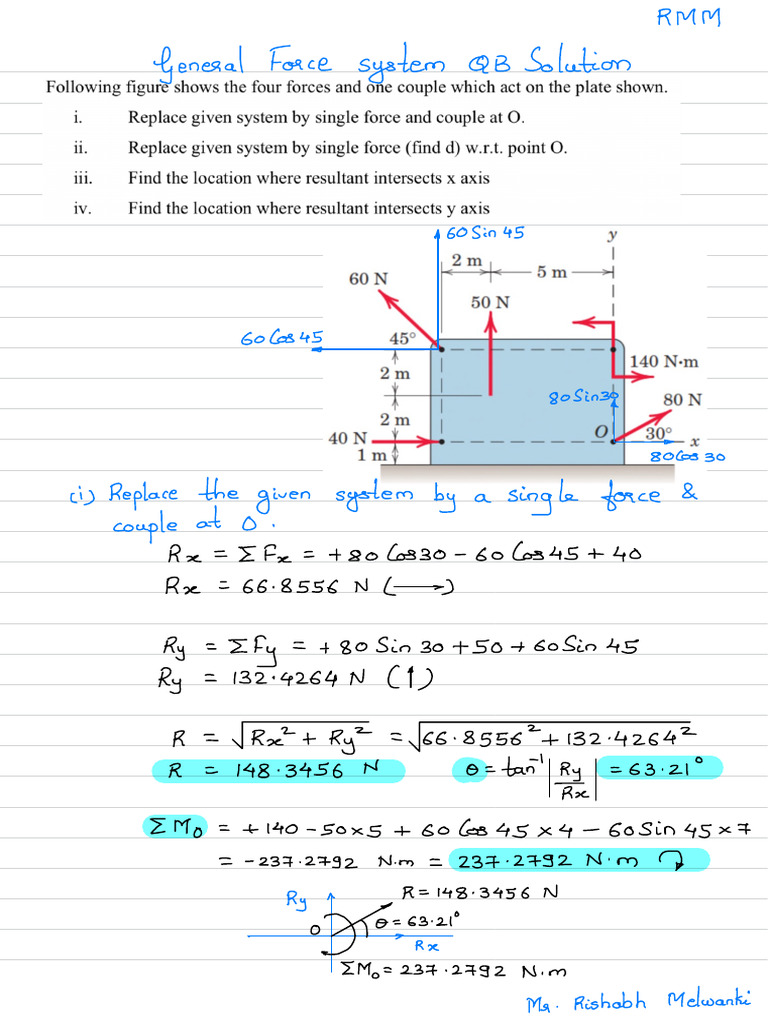 RMM
General Force system QB Solution
Following figure shows the four forces and one couple which act on the plate shown.
i. Replace given system by single force and couple at O.
ii. Replace given system by single force (find d) w.r.t. point O.
iii. Find the location where resultant intersects x axis
iv. Find the location where resultant intersects y axis
60 Sin 45
y
2 m
5 m
60 N
50 N
60 Cos 45
45°
140 N·m
2 m
80 Sin 30
80 N
2 m
O
30°
x
40 N
1 m
80 Cos 30
(i) Replace the given system by a single force &
couple at O.
Rx = ΣFx = +80 Cos 30 - 60 Cos 45 + 40
Rx = 66.8556 N (⟶)
Ry = ΣFy = +80 Sin 30 + 50 + 60 Sin 45
Ry = 132.4264 N (↑)
R = √Rx² + Ry² = √66.8556² + 132.4264²
R = 148.3456 N θ = tan⁻¹ |Ry/Rx| = 63.21°
ΣMo = +140 - 50×5 + 60 Cos 45 × 4 - 60 Sin 45 × 7
= -237.2792 N.m = 237.2792 N.m ↷
Ry
R = 148.3456 N
O
θ = 63.21°
Rx
ΣMo = 237.2792 N.m
Mr. Rishabh Melwanki